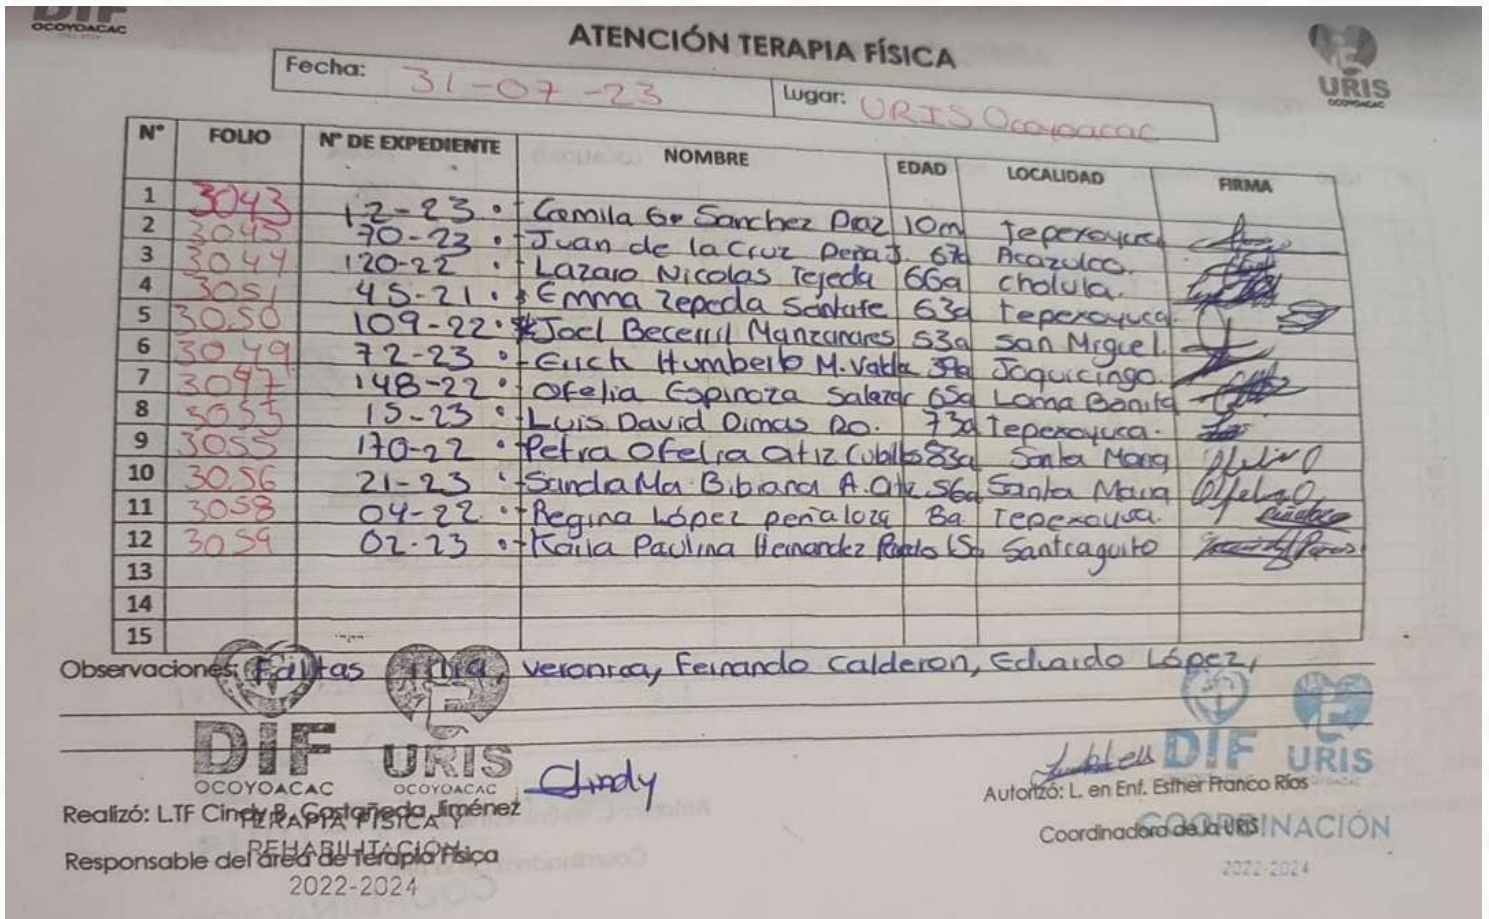 DIF
OCOYOACAC
URIS
OCOYOACAC
ATENCIÓN TERAPIA FÍSICA
Fecha: 31-07-23 Lugar: URIS Ocoyoacac
N° FOLIO N° DE EXPEDIENTE NOMBRE EDAD LOCALIDAD FIRMA
1 3043 12-23 Camila Sanchez Diaz 10m Tepexoyuca
2 3045 70-23 Juan de la Cruz Peña J. 67a Acazulco.
3 3044 120-22 Lazaro Nicolas Tejeda 66a cholula.
4 3051 45-21 Emma Zepeda 63a tepexoyuca.
5 3050 109-22 Joel Becerril Manzanares 53a San Miguel.
6 3049 72-23 Erick Humberto M. Joquicingo.
7 3047 148-22 Ofelia Espinoza Salazar 65a Loma Bonita
8 3053 15-23 Luis David Dimas 73a Tepexoyuca.
9 3055 170-22 Petra Ofelia 83a Santa Maria
10 3056 21-23 Ma. Bibiana A. 56a Santa Maria
11 3058 04-22 Regina López peñaloza 8a. Tepexoyuca.
12 3059 02-23 Karla Paulina Hernandez Santiaguito
13
14
15
Observaciones: Faltas Veronica, Fernando Calderon, Eduardo López,
DIF URIS
OCOYOACAC OCOYOACAC
Cindy
TERAPIA FÍSICA Y
REHABILITACIÓN
2022-2024
Realizó: L.TF Cindy B. Castañeda Jiménez
Responsable del área de Terapia Física
DIF URIS
Autorizó: L. en Enf. Esther Franco Ríos
Coordinadora de la URIS
COORDINACIÓN
2022-2024